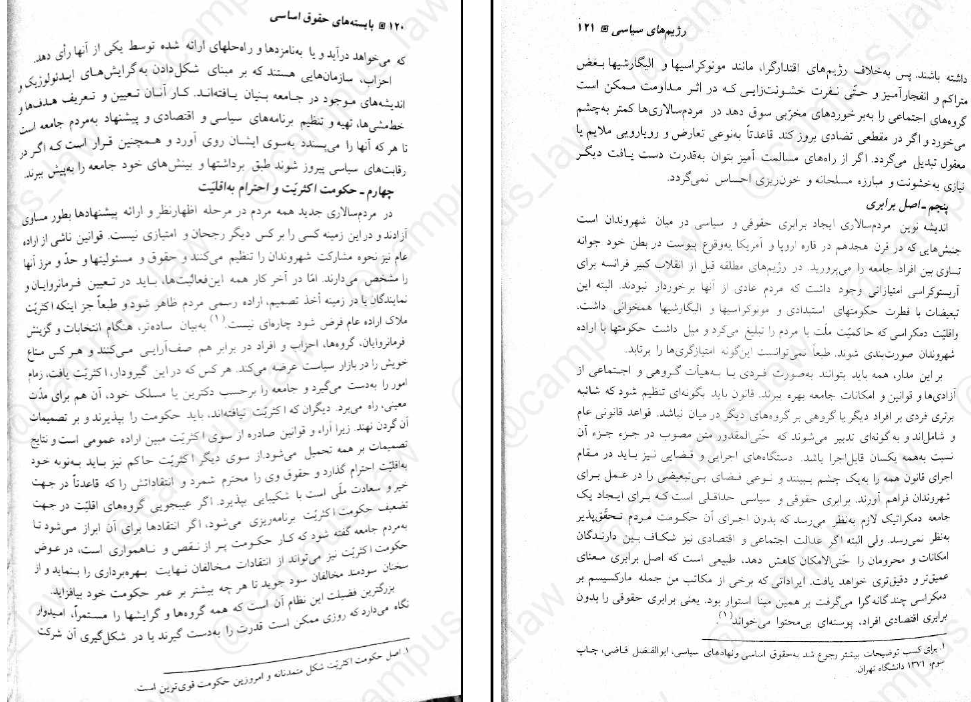 ۱۲۰ ▣ بایسته‌های حقوق اساسی
که می‌خواهد درآید و یا به‌نامزدها و راه‌حلهای ارائه شده توسط یکی از آنها رأی دهد.
احزاب، سازمان‌هایی هستند که بر مبنای شکل‌دادن به‌گرایش‌های ایدئولوژیک و
اندیشه‌های موجود در جامعه بنیان یافته‌اند. کار آنان تعیین و تعریف هدف‌ها و
خط‌مشی‌ها، تهیه و تنظیم برنامه‌های سیاسی و اقتصادی و پیشنهاد به‌مردم جامعه است
تا هر که آنها را می‌پسندد به‌سوی ایشان روی آورد و همچنین قرار است که اگر در
رقابت‌های سیاسی پیروز شوند طبق برداشتها و بینش‌های خود جامعه را به‌پیش ببرند.
چهارم ـ حکومت اکثریّت و احترام به‌اقلیّت
در مردم‌سالاری جدید همه مردم در مرحله اظهارنظر و ارائه پیشنهادها بطور مساوی
آزادند و در این زمینه کسی را بر کس دیگر رجحان و امتیازی نیست. قوانین ناشی از اراده
عام نیز نحوه مشارکت شهروندان را تنظیم می‌کنند و حقوق و مسئولیتها و حدّ و مرز آنها
را مشخص می‌دارند. امّا در آخر کار همه این‌فعالیت‌ها، باید در تعیین فرمانروایان و
نمایندگان یا در زمینه أخذ تصمیم، اراده رسمی مردم ظاهر شود و طبعاً جز اینکه اکثریّت
ملاک اراده عام فرض شود چاره‌ای نیست.(۱) به‌بیان ساده‌تر، هنگام انتخابات و گزینش
فرمانروایان، گروه‌ها، احزاب و افراد در برابر هم صف‌آرایی می‌کنند و هر کس متاع
خویش را در بازار سیاست عرضه می‌کند. هر کس که در این گیرودار، اکثریّت یافت، زمام
امور را به‌دست می‌گیرد و جامعه را برحسب دکترین یا مسلک خود، آن هم برای مدّت
معینی، راه می‌برد. دیگران که اکثریّت نیافته‌اند، باید حکومت را بپذیرند و بر تصمیمات
آن گردن نهند. زیرا آراء و قوانین صادره از سوی اکثریّت مبین اراده عمومی است و نتایج
تصمیمات بر همه تحمیل می‌شود. از سوی دیگر اکثریّت حاکم نیز باید به‌نوبه خود
به‌اقلیّت احترام گذارد و حقوق وی را محترم شمرد و انتقاداتش را که قاعدتاً در جهت
خیر و سعادت ملّی است با شکیبایی بپذیرد. اگر عیبجویی گروه‌های اقلیّت در جهت
تضعیف حکومت اکثریّت برنامه‌ریزی می‌شود، اگر انتقادها برای آن ابراز می‌شود تا
به‌مردم جامعه گفته شود که کار حکومت پر از نقص و ناهمواری است، در عوض
حکومت اکثریّت نیز می‌تواند از انتقادات مخالفان نهایت بهره‌برداری را بنماید و از
سخنان سودمند مخالفان سود جوید تا هر چه بیشتر بر عمر حکومت خود بیافزاید.
بزرگترین فضیلت این نظام آن است که همه گروه‌ها و گرایشها را مستمراً، امیدوار
نگاه می‌دارد که روزی ممکن است قدرت را به‌دست گیرند یا در شکل‌گیری آن شرکت
۱. اصل حکومت اکثریّت شکل متمدنانه و امروزین حکومت قوی‌ترین است.
رژیم‌های سیاسی ▣ ۱۲۱
داشته باشند. پس به‌خلاف رژیم‌های اقتدارگرا، مانند مونوکراسیها و الیگارشیها بغض
متراکم و انفجارآمیز و حتّی نفرت خشونت‌زایی که در اثر مداومت ممکن است
گروه‌های اجتماعی را به‌برخوردهای مخرّبی سوق دهد در مردم‌سالاری‌ها کمتر به‌چشم
می‌خورد و اگر در مقطعی تضادی بروز کند قاعدتاً به‌نوعی تعارض و رویارویی ملایم یا
معقول تبدیل می‌گردد. اگر از راه‌های مسالمت آمیز بتوان به‌قدرت دست یافت دیگر
نیازی به‌خشونت و مبارزه مسلحانه و خون‌ریزی احساس نمی‌گردد.
پنجم ـ اصل برابری
اندیشه نوین مردم‌سالاری ایجاد برابری حقوقی و سیاسی در میان شهروندان است
جنبش‌هایی که در قرن هجدهم در قاره اروپا و آمریکا به‌وقوع پیوست در بطن خود جوانه
تساوی بین افراد جامعه را می‌پرورید. در رژیم‌های مطلقه قبل از انقلاب کبیر فرانسه برای
آریستوکراسی امتیازاتی وجود داشت که مردم عادی از آنها برخوردار نبودند. البته این
تبعیضات با فطرت حکومتهای استبدادی و مونوکراسیها و الیگارشیها همخوانی داشت.
واقلیّت دمکراسی که حاکمیّت ملّت یا مردم را تبلیغ می‌کرد و میل داشت حکومتها با اراده
شهروندان صورت‌بندی شوند. طبعاً نمی‌توانست این‌گونه امتیازگری‌ها را برتابد.
بر این مدار، همه باید بتوانند به‌صورت فردی یا به‌هیأت گروهی و اجتماعی از
آزادی‌ها و قوانین و امکانات جامعه بهره ببرند. قانون باید بگونه‌ای تنظیم شود که شائبه
برتری فردی بر افراد دیگر یا گروهی بر گروه‌های دیگر در میان نباشد. قواعد قانونی عام
و شامل‌اند و به‌گونه‌ای تدبیر می‌شوند که حتّی‌المقدور متن مصوب در جزء جزء آن
نسبت به‌همه یکسان قابل‌اجرا باشد. دستگاه‌های اجرایی و قضایی نیز باید در مقام
اجرای قانون همه را به‌یک چشم ببینند و نوعی فضای بی‌تبعیضی را در عمل برای
شهروندان فراهم آورند. برابری حقوقی و سیاسی حداقلی است که برای ایجاد یک
جامعه دمکراتیک لازم به‌نظر می‌رسد که بدون اجرای آن حکومت مردم تحقّق‌پذیر
به‌نظر نمی‌رسد. ولی البته اگر عدالت اجتماعی و اقتصادی نیز شکاف بین دارندگان
امکانات و محرومان را حتّی‌الامکان کاهش دهد، طبیعی است که اصل برابری معنای
عمیق‌تر و دقیق‌تری خواهد یافت. ایراداتی که برخی از مکاتب من جمله مارکسیسم بر
دمکراسی چندگانه‌گرا می‌گرفت بر همین مبنا استوار بود. یعنی برابری حقوقی را بدون
برابری اقتصادی افراد، پوسته‌ای بی‌محتوا می‌خواند.(۱)
۱. برای کسب توضیحات بیشتر رجوع شد به‌حقوق اساسی ونهادهای سیاسی، ابوالفضل قاضی، چاپ
سوم، ۱۳۷۱ دانشگاه تهران.
@campus_law